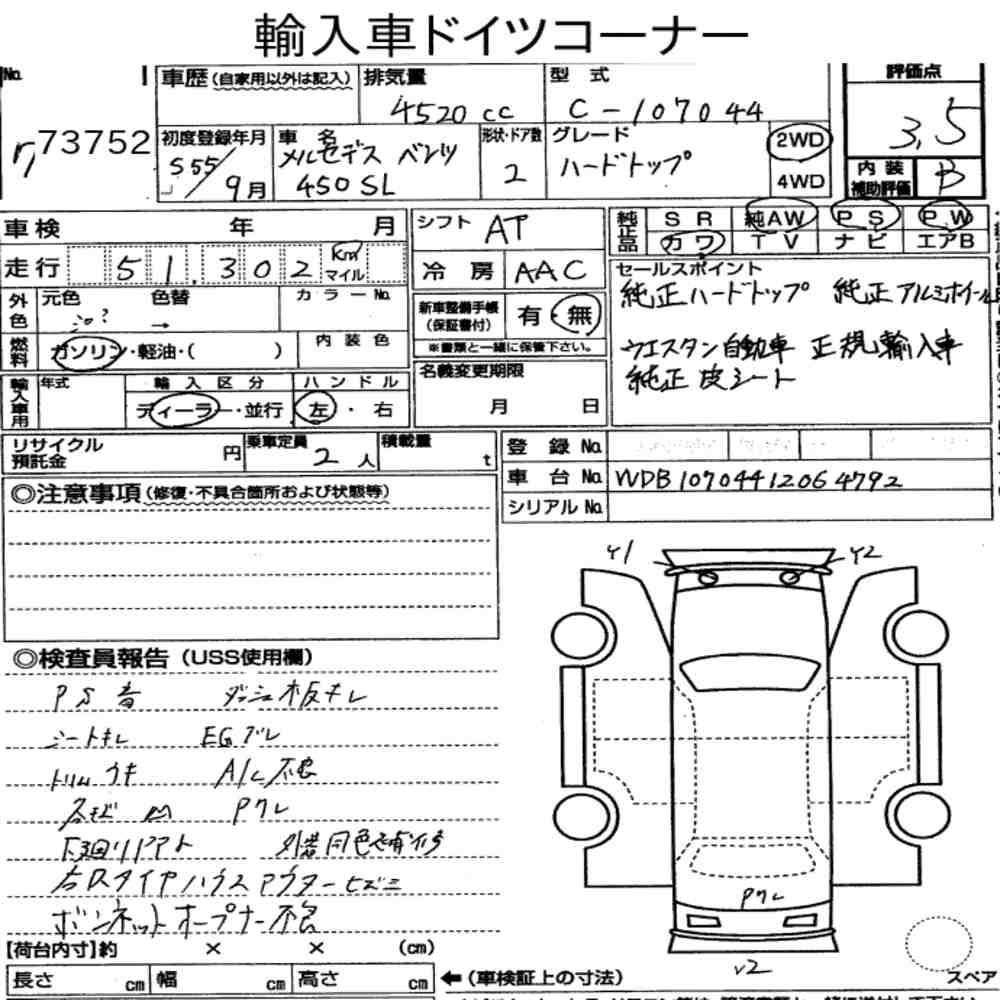 輸入車ドイツコーナー
No. 73752
車歴(自家用以外は記入) 排気量 4520cc 型式 C-107044 評価点 3.5
初度登録年月 S55/9月 車名 メルセデス ベンツ 450SL 形状・ドア数 2 グレード ハードトップ 2WD 4WD 内装補助評価 B
車検 年 月 シフト AT 純正品 SR 純AW PS PW
走行 51.302 Km マイル 冷房 AAC カワ TV ナビ エアB
外色 元色 色替 → カラーNo. 新車整備手帳(保証書付) 有・無
燃料 ガソリン・軽油・( ) 内装色 ※書類と一緒に保管下さい。
セールスポイント
純正ハードトップ 純正アルミホイール
ウエスタン自動車 正規輸入車
純正皮シート
輸入車用 年式 輸入区分 ディーラー・並行 ハンドル 左・右 名義変更期限 月 日
リサイクル預託金 円 乗車定員 2人 積載量 t
登録No.
車台No. WDB10704412064792
シリアルNo.
◎注意事項(修復・不具合箇所および状態等)
◎検査員報告(USS使用欄)
PS音 ダッシュ板キレ
シートキレ EGブレ
トリムウキ A/C不良
各サビ凹 Pクレ
下廻リアト 外装同色補修
右Rタイヤハウスアウターヒズミ
ボンネットオープナー不良
Y1 Y2
Pクレ
V2
スペア
[荷台内寸]約 × × (cm)
長さ cm 幅 cm 高さ cm ←(車検証上の寸法)